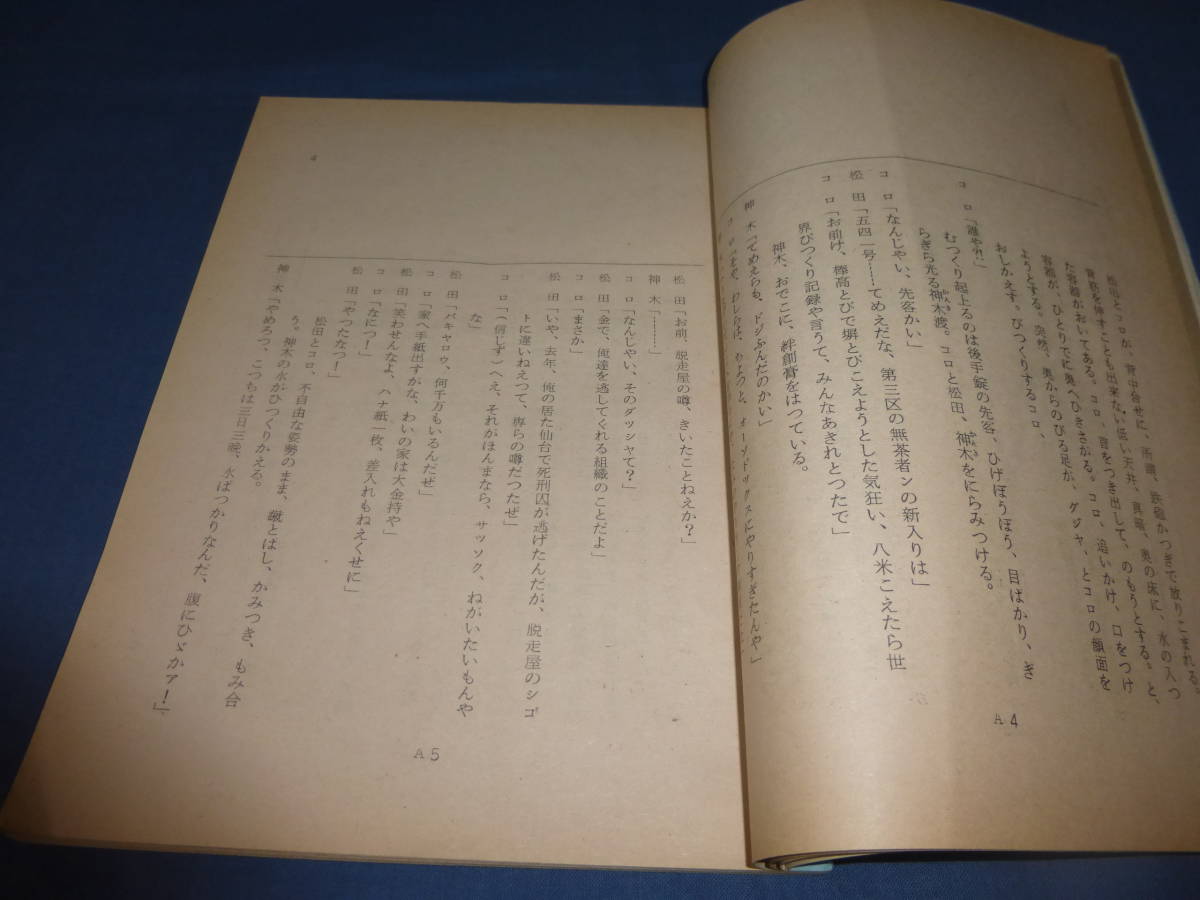 松田とコロが、背中合せに、所謂、鉄砲かつぎで放りこまれる。
背筋を伸すことも出来ない低い天井、真暗、奥の床に、水の入つ
た容器がおいてある。コロ、首をつき出して、のもうとする。と、
容器が、ひとりでに奥へひきさがる。コロ、追いかけ、口をつけ
ようとする。突然、奥からのびる足が、グジャ、とコロの顔面を
おしかえす。びつくりするコロ、
コロ「誰や⁈」
むつくり起上るのは後手錠の先客、ひげぼうぼう、目ばかり、ぎ
らぎら光る神木渡。コロと松田、神木をにらみつける。
かんき
かみき
コロ「なんじゃい、先客かい」
松田「五四一号……てめえだな、第三区の無茶者ンの新入りは」
コロ「お前け、棒高とびで塀とびこえようとした気狂い、八米こえたら世
界びつくり記録や言うて、みんなあきれとつたで」
神木、おでこに、絆創膏をはつている。
神木「てめえらも、ドジふんだのかい」
コロ「をや、わしらは、ちよつと、オーソドックスにやりすぎたんや」
A4
4
松田「お前、脱走屋の噂、きいたことねえか?」
神木「……」
コロ「なんじゃい、そのダッシャて?」
松田「金で、俺達を逃してくれる組織のことだよ」
コロ「まさか」
松田「いや、去年、俺の居た仙台で死刑囚が逃げたんだが、脱走屋のシゴ
トに違いねえって、専らの噂だつたぜ」
コロ「(信じず)へえ、それがほんまなら、サッソク、ねがいたいもんや
な」
松田「バキヤロウ、何千万もいるんだぜ」
コロ「家へ手紙出すがな、わいの家は大金持や」
松田「笑わせんなよ、ハナ紙一枚、差入れもねえくせに」
コロ「なにつ!」
松田「やつたなつ!」
松田とコロ、不自由な姿勢のまま、蹴とばし、かみつき、もみ合
う。神木の水がひつくりかえる。
神木「やめろつ、こつちは三日三晩、水ばつかりなんだ、腹にひゞかァ!」
A5